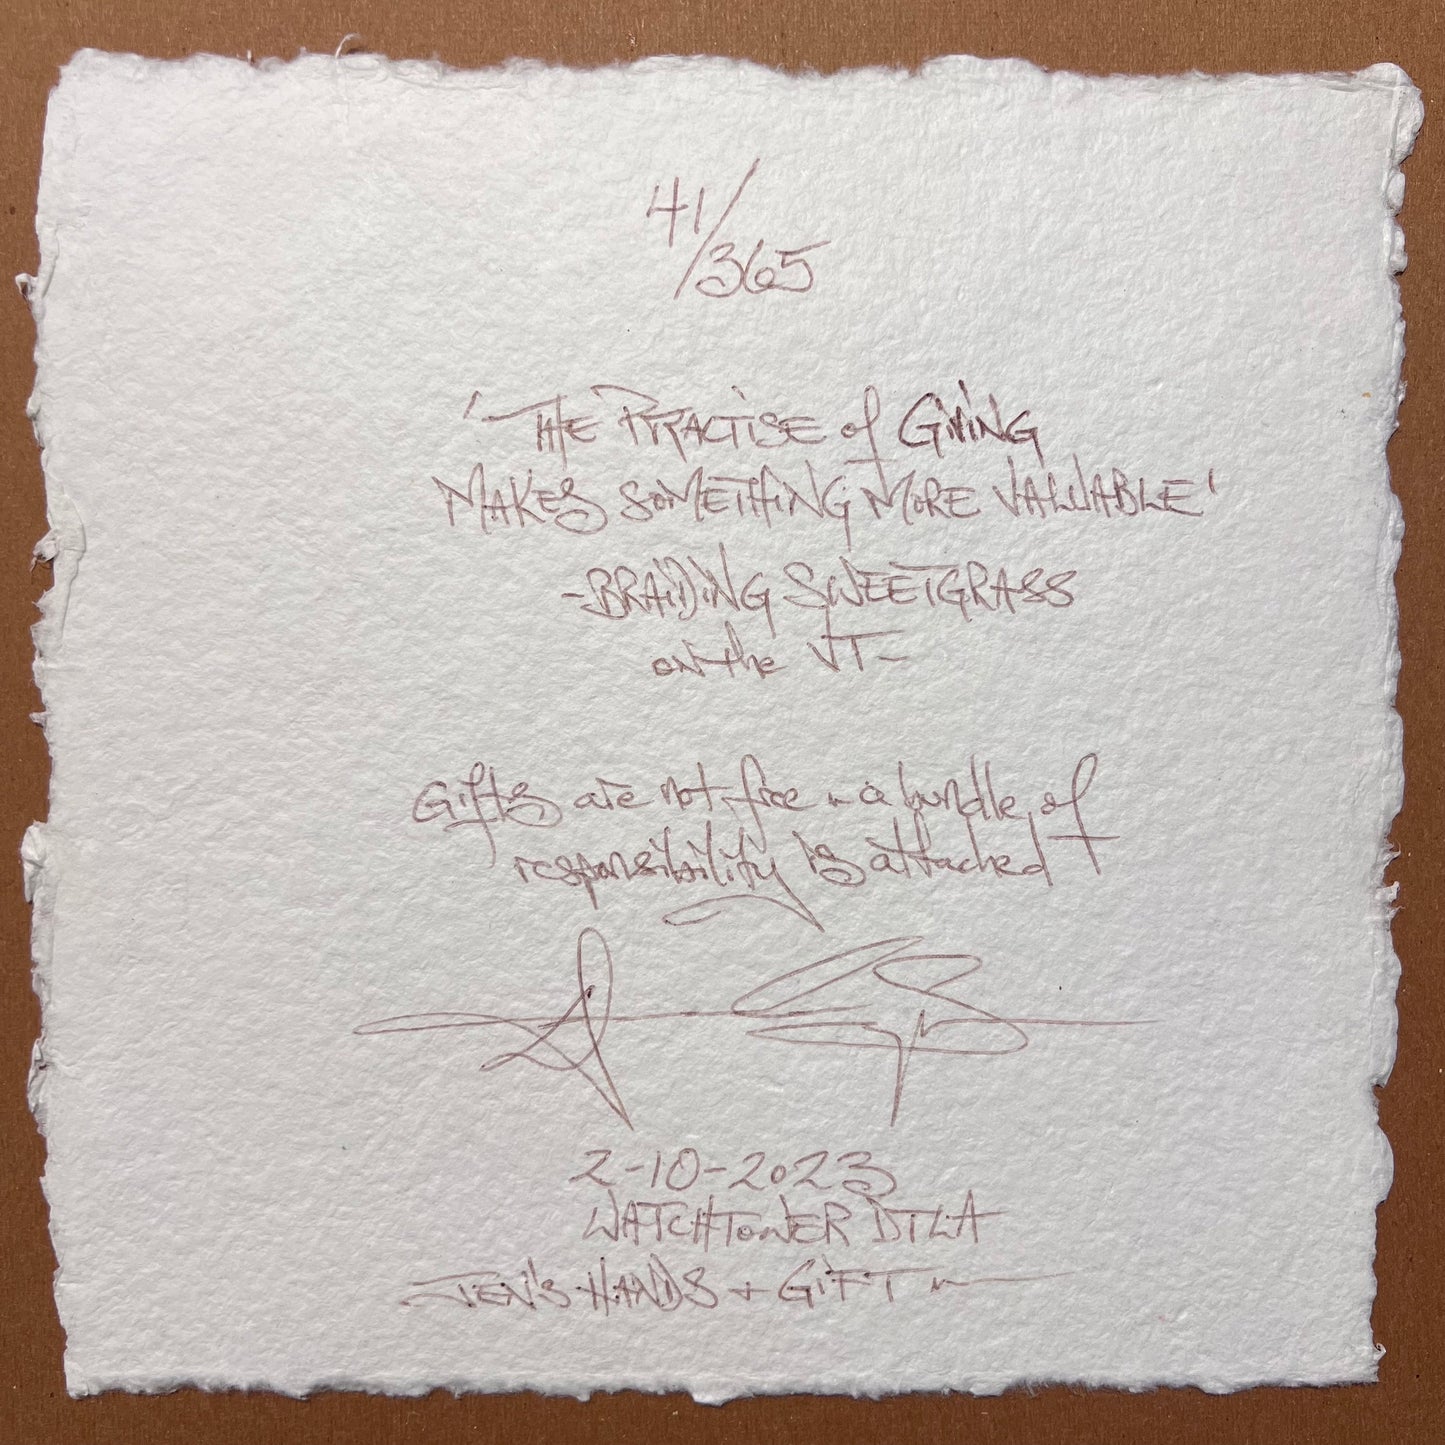 41/365
'THE PRACTISE of GIVING
MAKES SOMETHING MORE VALUABLE'
-BRAIDING SWEETGRASS
on the VT-
Gifts are not free ~ a bundle of
responsibility is attached
2-10-2023
WATCHTOWER DTLA
JEN'S HANDS + GIFT ~